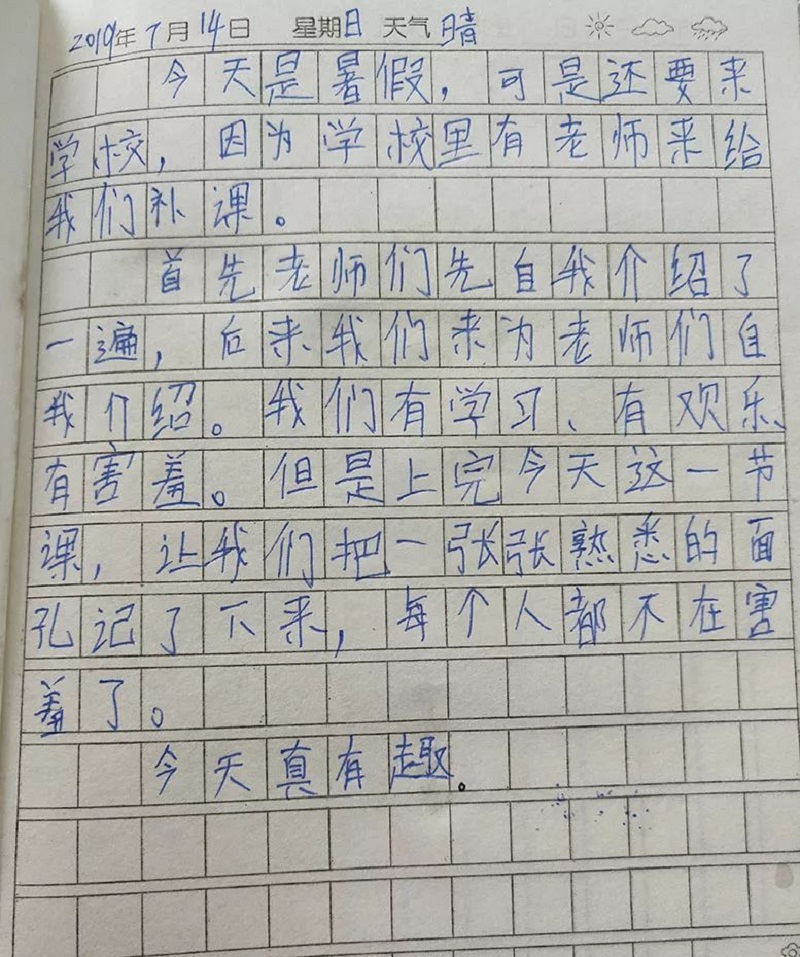 2019年7月14日 星期日 天气 晴
今天是暑假，可是还要来
学校，因为学校里有老师来给
我们补课。
首先老师们先自我介绍了
一遍，后来我们来为老师们自
我介绍。我们有学习、有欢乐、
有害羞。但是上完今天这一节
课，让我们把一张张熟悉的面
孔记了下来，每个人都不在害
羞了。
今天真有趣。